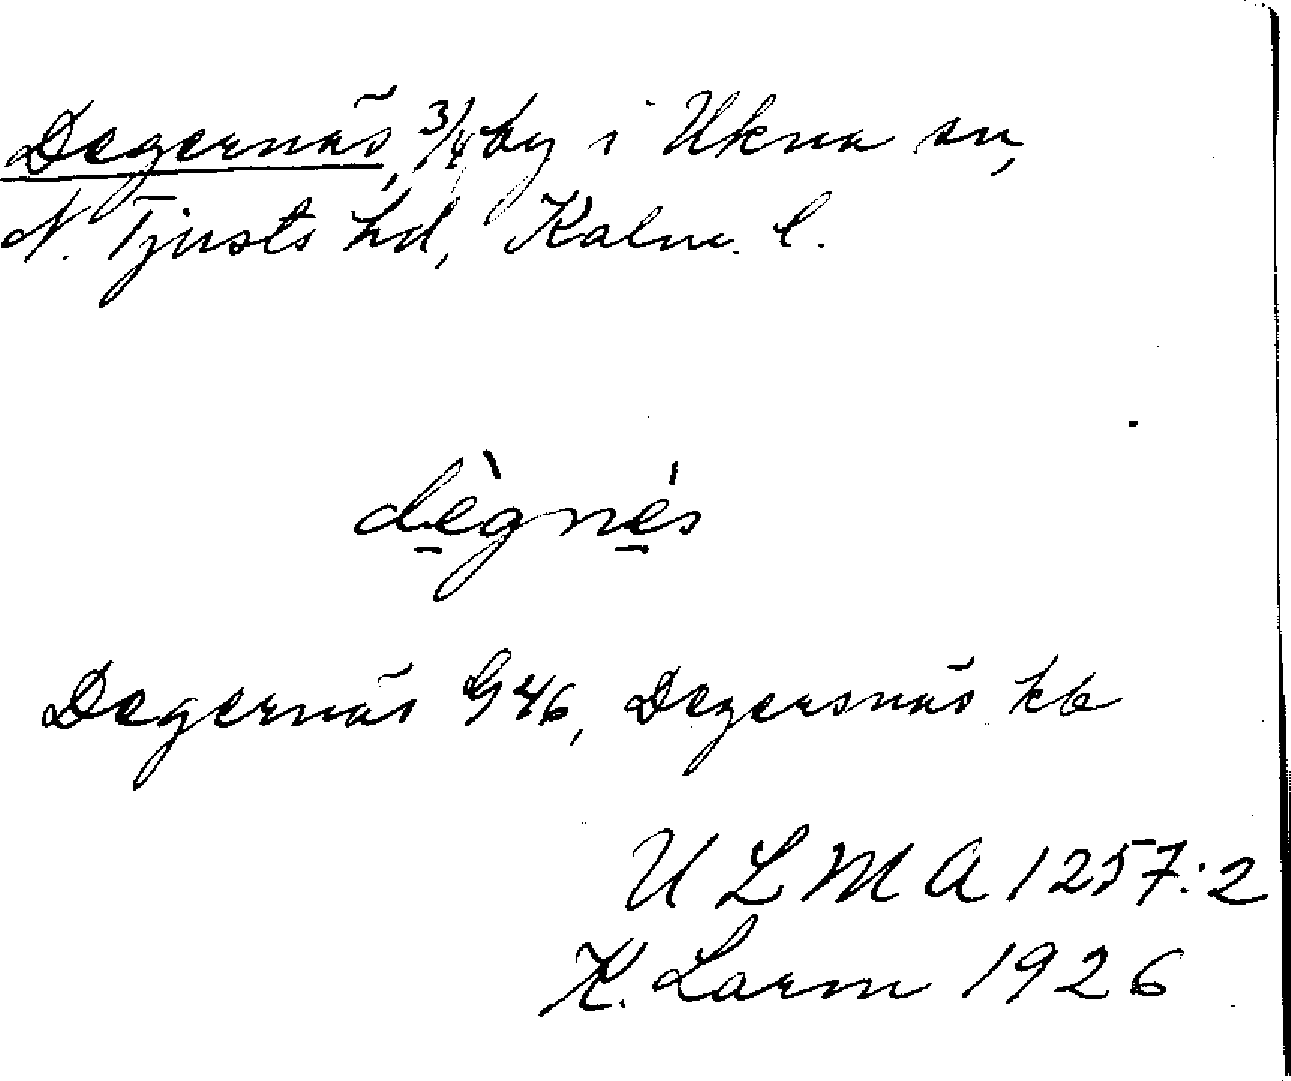 Degernäs, 3/4 by i Ukna sn,
N. Tjusts hd, Kalm. l.
dè̱gné̱s
Degernäs G 46, Degersnäs kb
ULMA 1257:2
K. Larm 1926